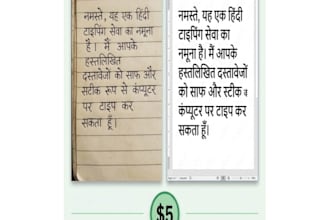 नमस्ते, यह एक हिंदी
टाइपिंग सेवा का नमूना
है। मैं आपके
हस्तलिखित
दस्तावेजों को साफ और
सटीक रूप से कंप्यूटर
पर टाइप कर
सकता हूँ।
नमस्ते, यह एक हिंदी
टाइपिंग सेवा का
नमूना है। मैं आपके
हस्तलिखित दस्तावेजों
को साफ और स्टीक व
कंप्यूटर पर टाइप कर
सकता हूँ।
$5